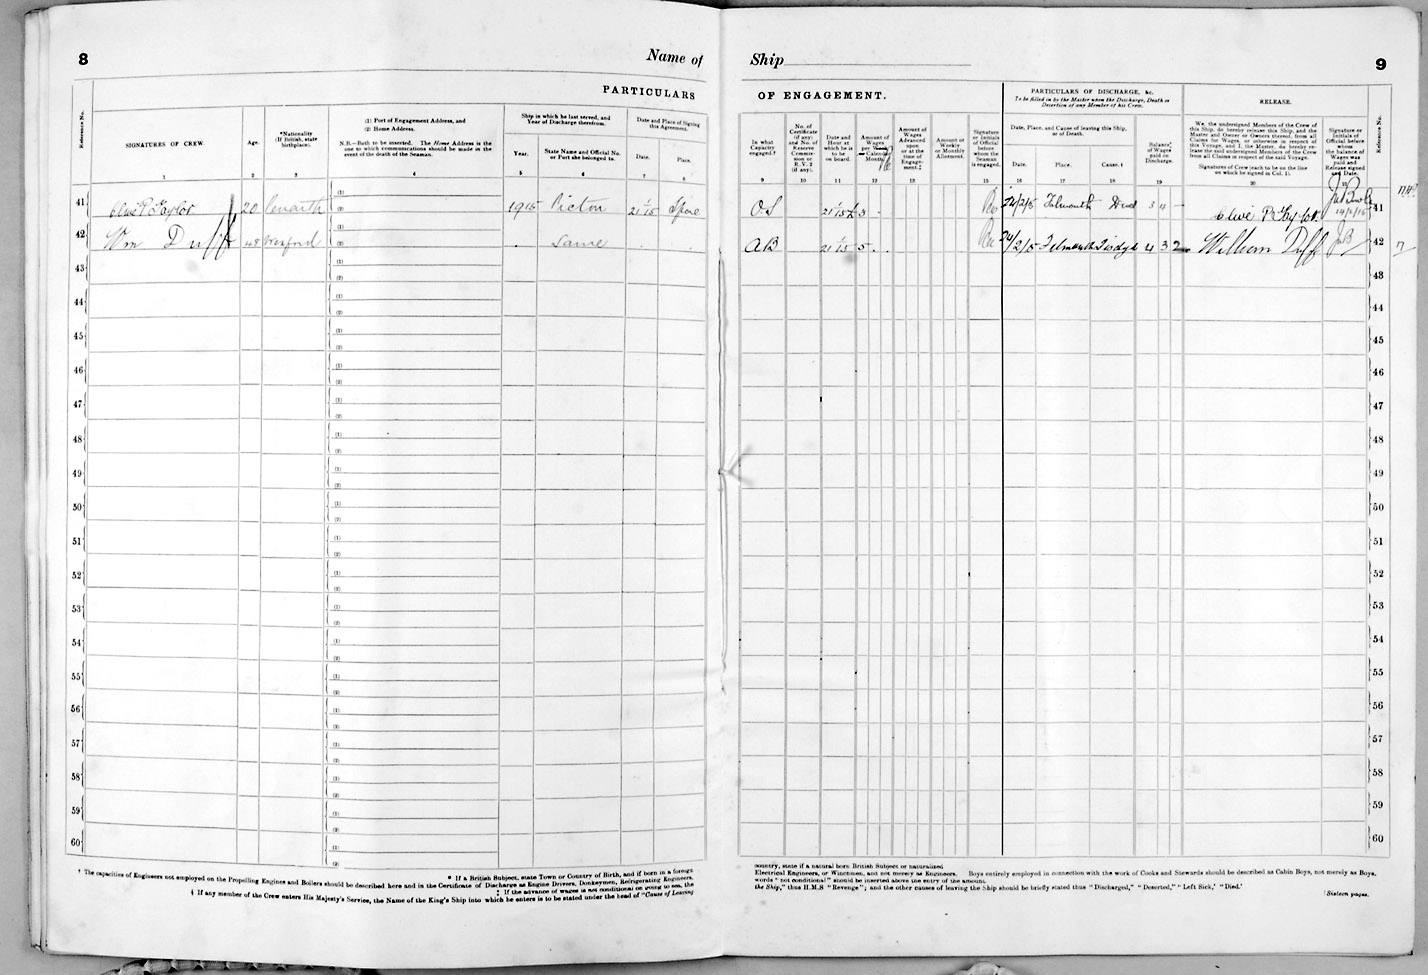 8
Name of
Ship
9
PARTICULARS
OF ENGAGEMENT.
PARTICULARS OF DISCHARGE, &c.
To be filled in by the Master upon the Discharge, Death or
Desertion of any Member of his Crew.
RELEASE.
Reference No.
SIGNATURES OF CREW.
Age.
*Nationality
(If British, state
birthplace).
(1) Port of Engagement Address, and
(2) Home Address.
N.B.—Both to be inserted. The Home Address is the
one to which communications should be made in the
event of the death of the Seaman.
Ship in which he last served, and
Year of Discharge therefrom.
Year.
State Name and Official No.
or Port she belonged to.
Date and Place of Signing
this Agreement.
Date.
Place.
In what
Capacity
engaged.†
No. of
Certificate
(if any)
and No. of
Reserve
Commis-
sion or
R.V.2
(if any).
Date and
Hour at
which he is
to be
on board.
Amount of
Wages
per
Calendar
Month
Amount of
Wages
Advanced
upon
or at the
time of
Engage-
ment.‡
Amount of
Weekly
or Monthly
Allotment.
Signature
or Initials
of Official
before
whom the
Seaman
is engaged.
Date, Place, and Cause of leaving this Ship,
or of Death.
Date.
Place.
Cause.‡
Balance
of Wages
paid on
Discharge.
We, the undersigned Members of the Crew of
this Ship, do hereby release this Ship, and the
Master and Owner or Owners thereof, from all
Claims for Wages, or otherwise in respect of
this Voyage, and I, the Master, do hereby re-
lease the said undersigned Members of the Crew
from all Claims in respect of the said Voyage.
Signatures of Crew (each to be on the line
on which he signed in Col. 1).
Signature or
Initials of
Official before
whom
the balance of
Wages was
paid and
Release signed
and Date.
Reference No.
1 2 3 4 5 6 7 8 9 10 11 12 13 14 15 16 17 18 19 20
41 Clive P. Taylor 20 Penarth (1) (2) 1915 Picton 21/1/15 Spore O.S 21/1/15 3 24/2/5 Falmouth Clive P. Taylor 24/2/15 41
42 Wm Duff 48 Wexford (1) (2) Same A B 21/1/15 5 24/2/5 Falmouth 4 3 2 William Duff 42
43 (1) (2) 48
44 (1) (2) 44
45 (1) (2) 45
46 (1) (2) 46
47 (1) (2) 47
48 (1) (2) 48
49 (1) (2) 49
50 (1) (2) 50
51 (1) (2) 51
52 (1) (2) 52
53 (1) (2) 53
54 (1) (2) 54
55 (1) (2) 55
56 (1) (2) 56
57 (1) (2) 57
58 (1) (2) 58
59 (1) (2) 59
60 (1) (2) 60
* If a British Subject, state Town or Country of Birth, and if born in a foreign
country, state if a natural born British Subject or naturalized
† The capacities of Engineers not employed on the Propelling Engines and Boilers should be described here and in the Certificate of Discharge as Engine Drivers, Donkeymen, Refrigerating Engineers,
Electrical Engineers, or Winchmen, and not merely as Engineers. Boys entirely employed in connection with the work of Cooks and Stewards should be described as Cabin Boys, not merely as Boys,
‡ If the advance of wages is not conditional on going to sea, the
words "not conditional" should be inserted above the entry of the amount.
§ If any member of the Crew enters His Majesty's Service, the Name of the King's Ship into which he enters is to be stated under the head of "Cause of Leaving
the Ship," thus H.M.S "Revenge"; and the other causes of leaving the Ship should be briefly stated thus "Discharged," "Deserted," "Left Sick,' "Died.'
Sixteen pages.